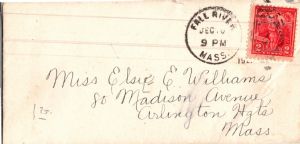 FALL RIVER
DEC 10
9 PM
MASS.
192
2 2
Miss Elsie E. Williams
80 Madison Avenue
Arlington Hgts
Mass.